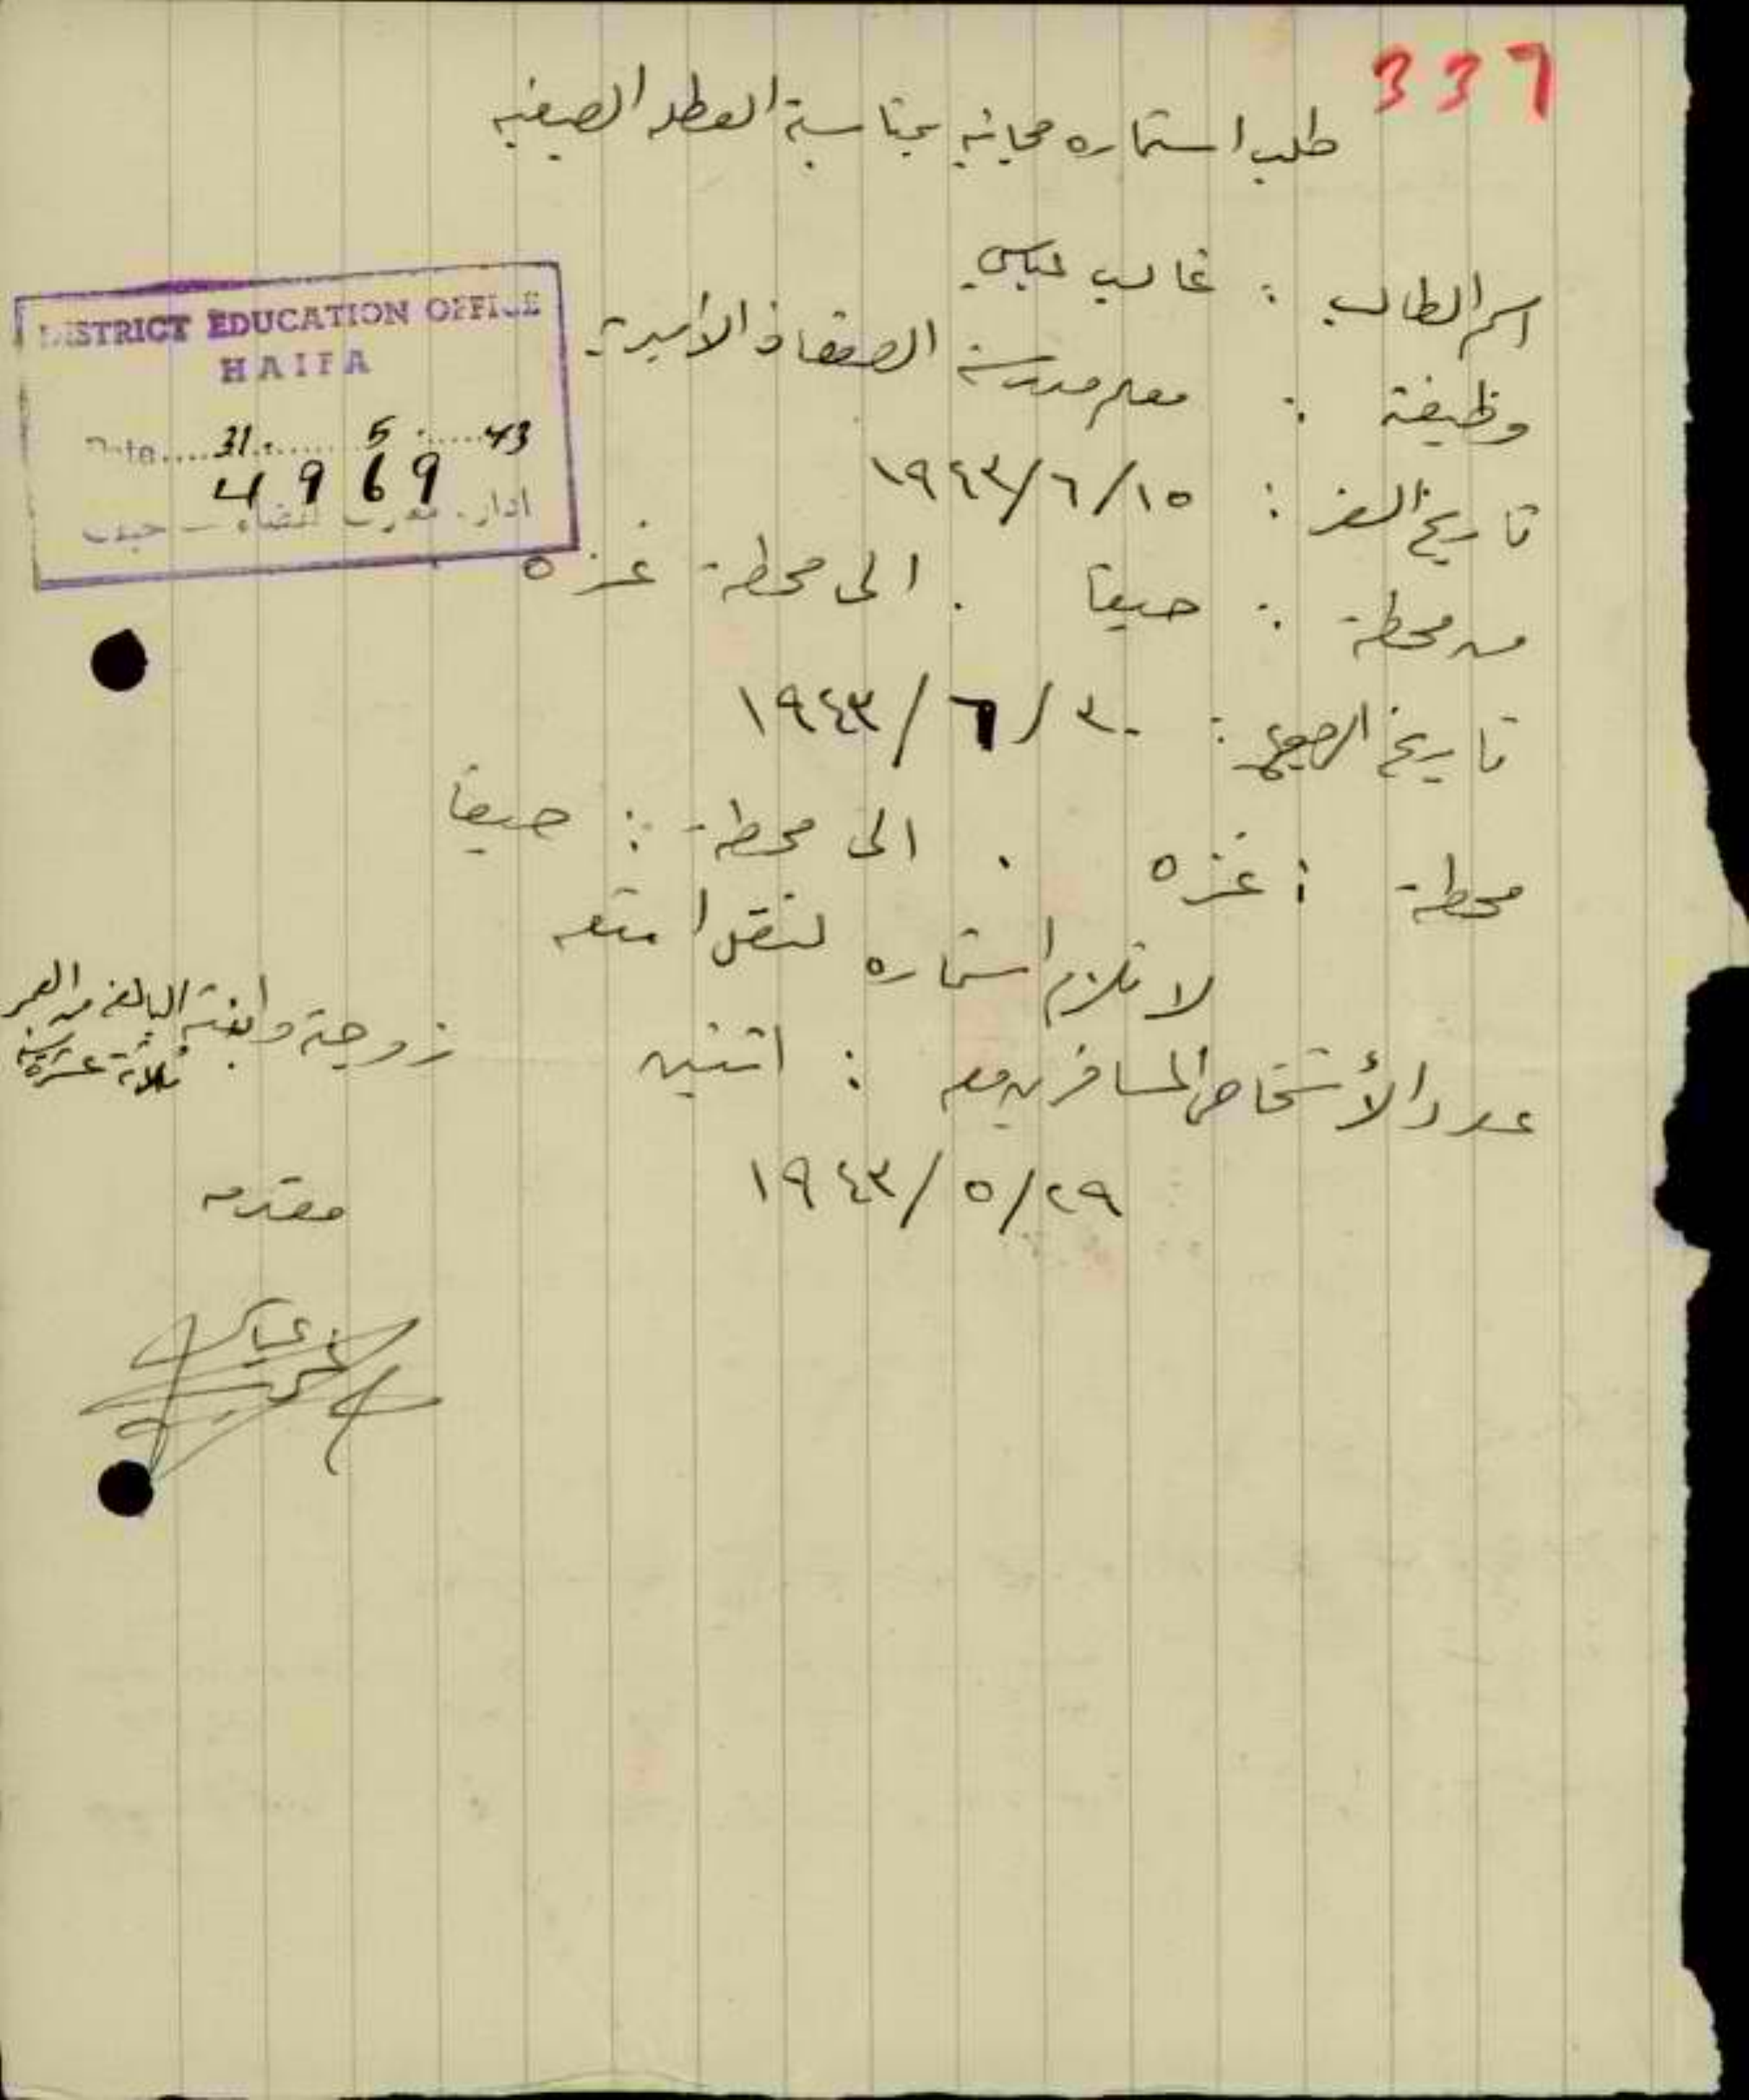 337
طلب استماره مجانيه بمناسبة العطله الصيفيه
DISTRICT EDUCATION OFFICE
HAIFA
Date.... 31. 5. 43
4969
ادارة معارف اللواء – حيفا
اسم الطالب : غالب عباسي
وظيفته : معلم مدرسة الصفصاف الأميرية
تاريخ السفر : ١٩٤٣/٦/١٥
من محطة : حيفا . الى محطة غزه
تاريخ الرجوع : ١٩٤٣/٦/٣٠
محطة : غزه . الى محطة : حيفا
لا تلزم استماره لنقل امتعه
عدد الأشخاص المسافرين معه : اثنين زوجته وابنته البالغه من العمر
ثلاثة عشرة سنة
١٩٤٣/٥/٢٩
مقدمه